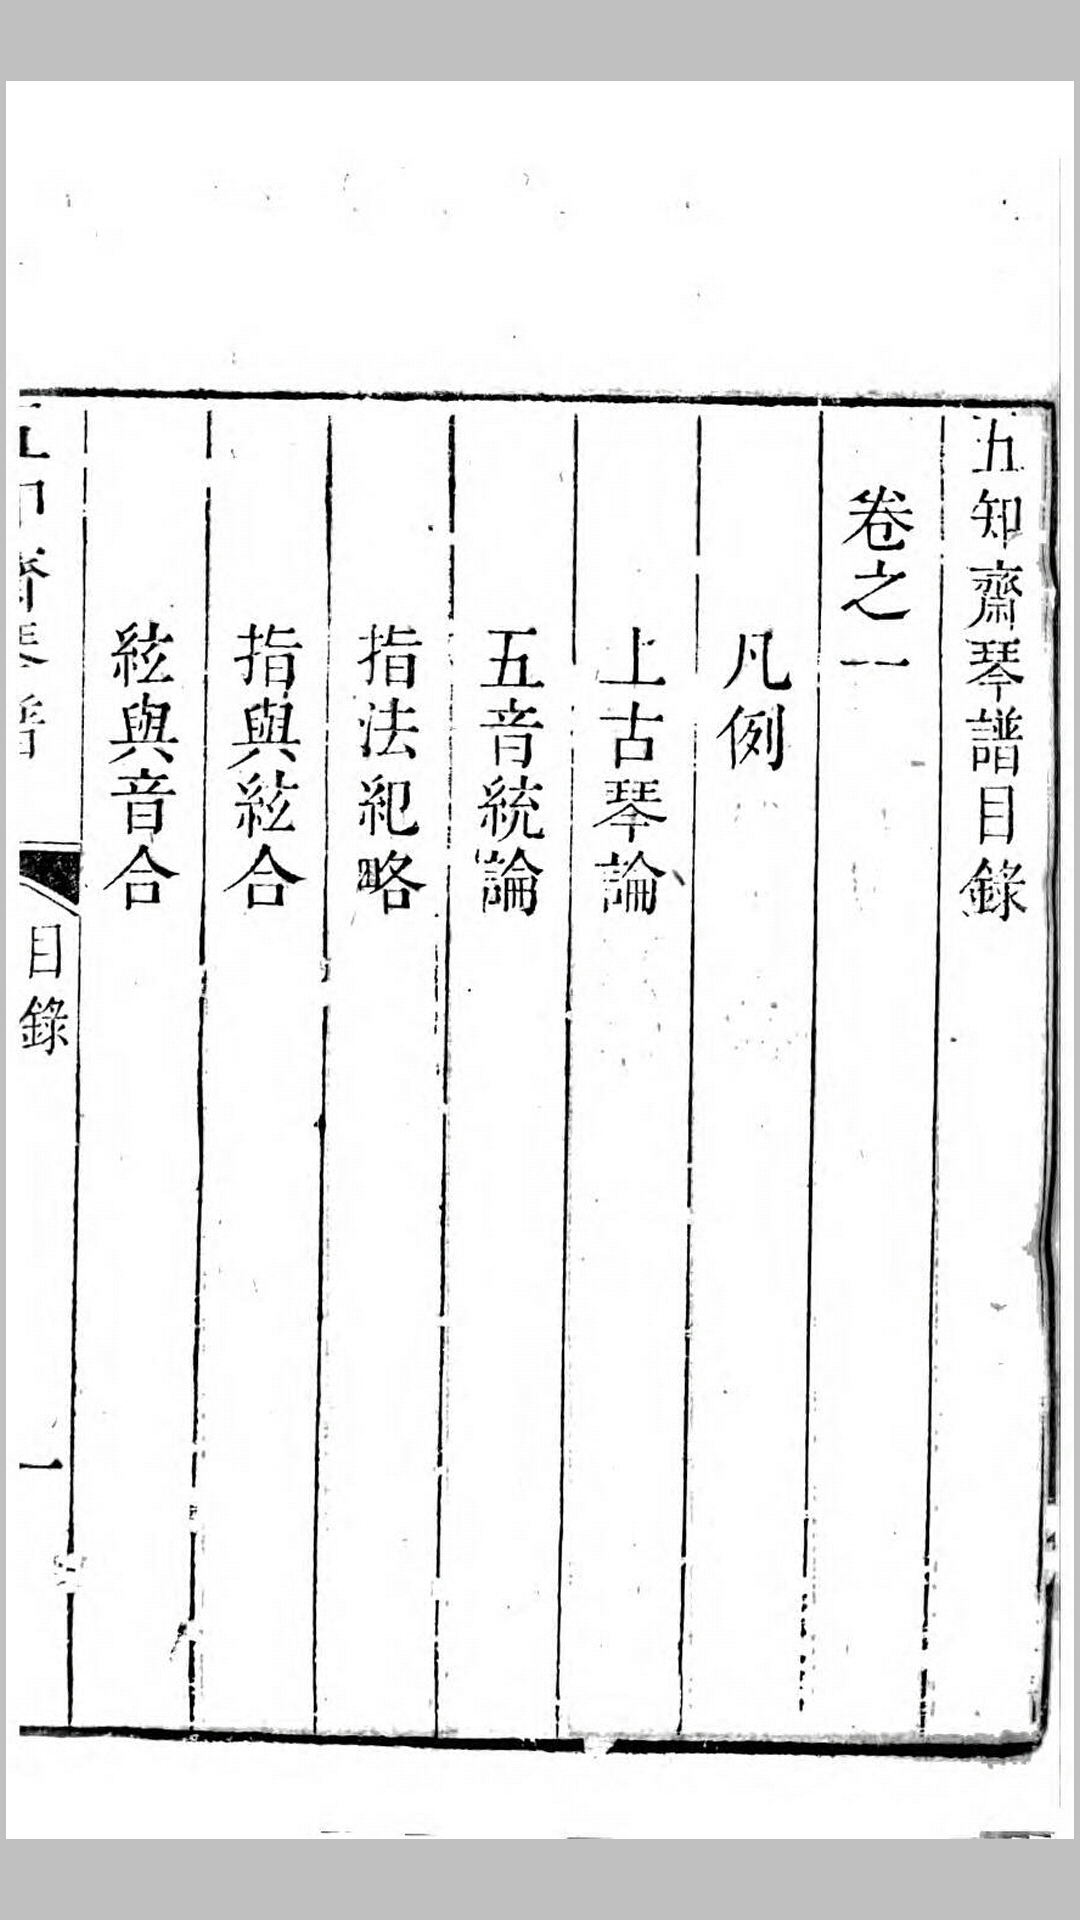 五知齋琴譜目錄
卷之一
凡例
上古琴論
五音統論
指法紀略
指與絃合
絃與音合
五知齋琴譜
目錄
一